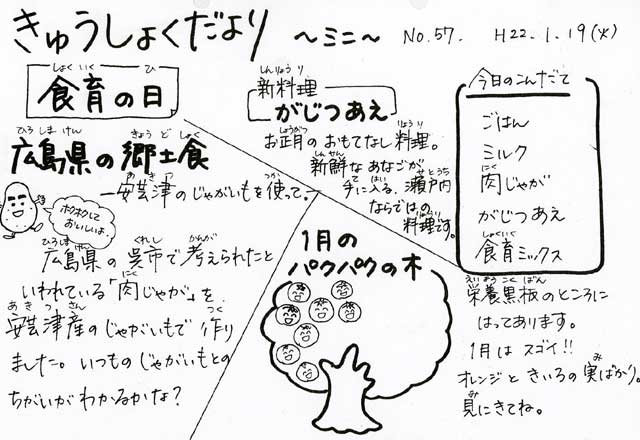 きゅうしょくだより ～ミニ～ No.57. H22.1.19(火)
食育の日
しょくいく ひ
広島県の郷土食
ひろしまけん きょうどしょく
―安芸津のじゃがいもを使って。―
あきつ つか
ホクホクしておいしいよ。
広島県の呉市で考えられたと
ひろしまけん くれし かんが
いわれている「肉じゃが」を
にく
安芸津産のじゃがいもで作り
あきつさん つく
ました。いつものじゃがいもとの
ちがいがわかるかな？
新料理
しんりょうり
がじつあえ
お正月のおもてなし料理。
しょうがつ りょうり
新鮮なあなごが
しんせん
手に入る、瀬戸内
て はい せとうち
ならではの
料理です。
りょうり
1月の
パクパクの木
今日のこんだて
ごはん
ミルク
肉じゃが
にく
がじつあえ
食育ミックス
しょくいく
栄養黒板のところに
えいようこくばん
はってあります。
1月はスゴイ!!
オレンジときいろの実ばかり。
み
見にきてね。
み